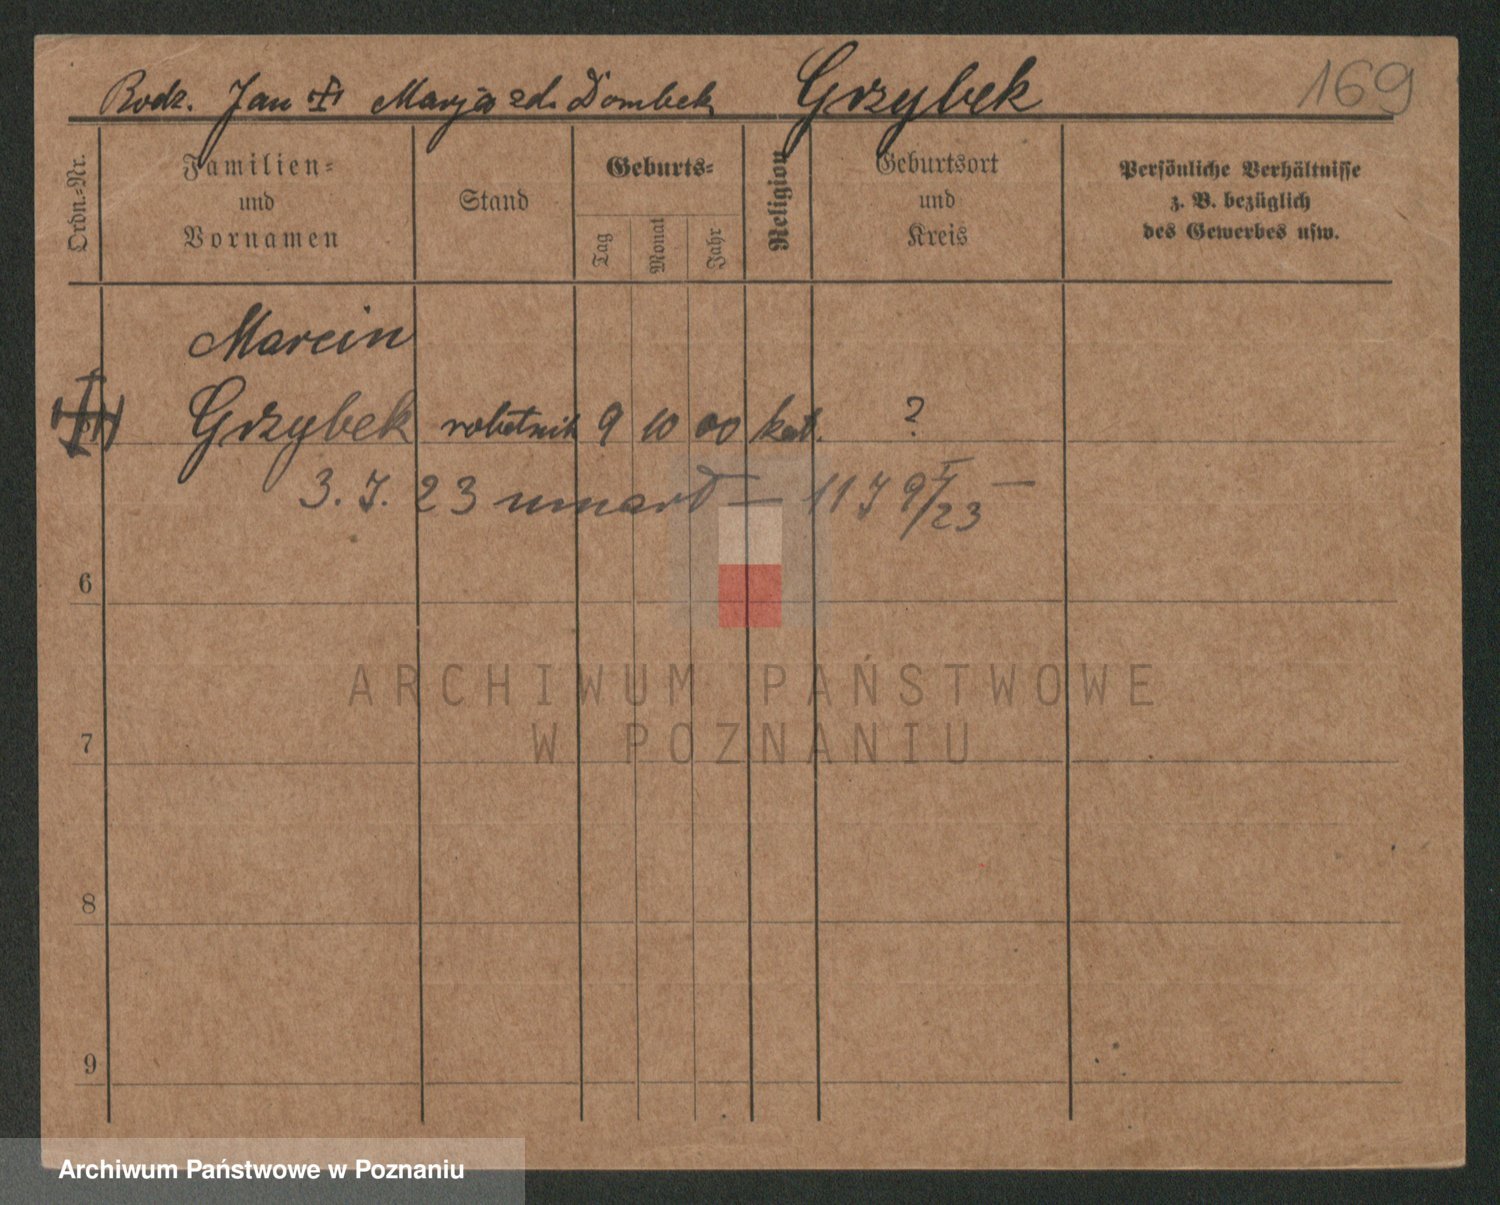 Rodz. Jan Marja zd. Dombek Grzybek 169
Ordn.-Nr.
Familien-
und
Vornamen
Stand
Geburts-
Tag
Monat
Jahr
Religion
Geburtsort
und
Kreis
Persönliche Verhältnisse
z. B. bezüglich
des Gewerbes usw.
Marcin
Grzybek robotnik 9 10 00 kat. ?
3. I. 23 umarł — 9/I 23 —
6
7
8
9
ARCHIWUM PAŃSTWOWE
W POZNANIU
Archiwum Państwowe w Poznaniu